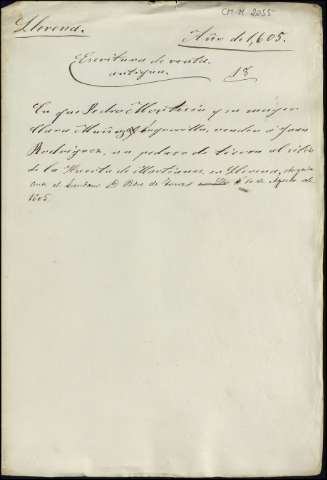 CM-M 2055
Llerena. Año de 1,605.
Escritura de venta
antigua. 18
En que Pedro y su muger
Clara Muñoz venden á Juan
Rodriguez, un pedazo de tierra al sitio
de la Huerta de Martinez, en Llerena,
ante el Escribano D. de Agosto de
1605.